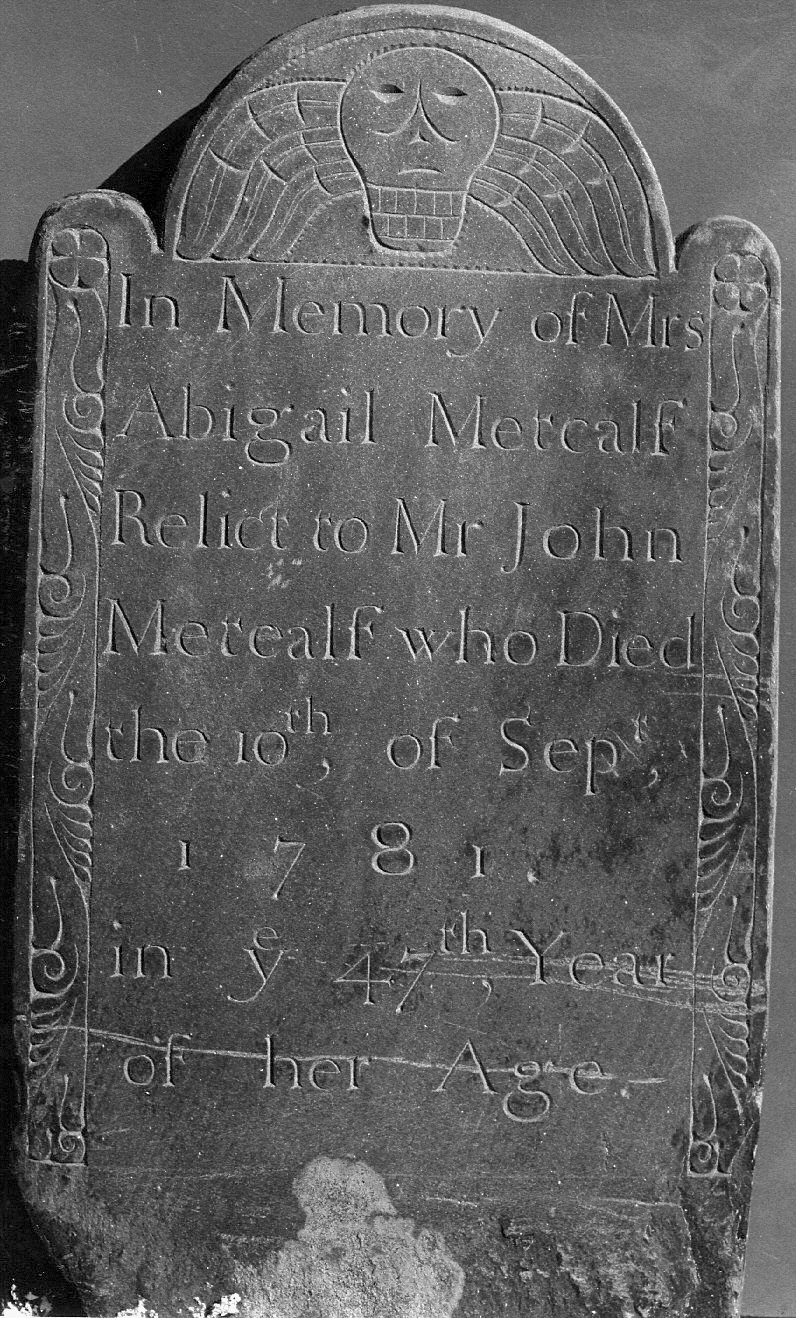 In Memory of Mrs
Abigail Metcalf
Relict to Mr John
Metcalf who Died
the 10th, of Sepr,
1781.
in ye 47th, Year
of her Age.